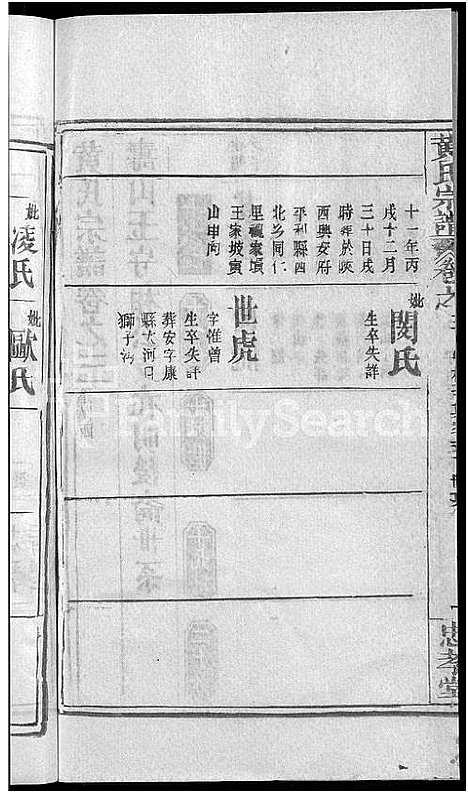 黃氏宗譜
卷之
忠孝堂
十一年丙
戌十二月
三十日戌
時葬於陝
西興安府
平利縣四
北乡同仁
里楓家埧
王家坡寅
山申向
妣閔氏
生卒失詳
世虎
字惟曾
生卒失詳
葬安字康
縣大河日
獅子沟
妣凌氏
妣歐氏
FamilySearch